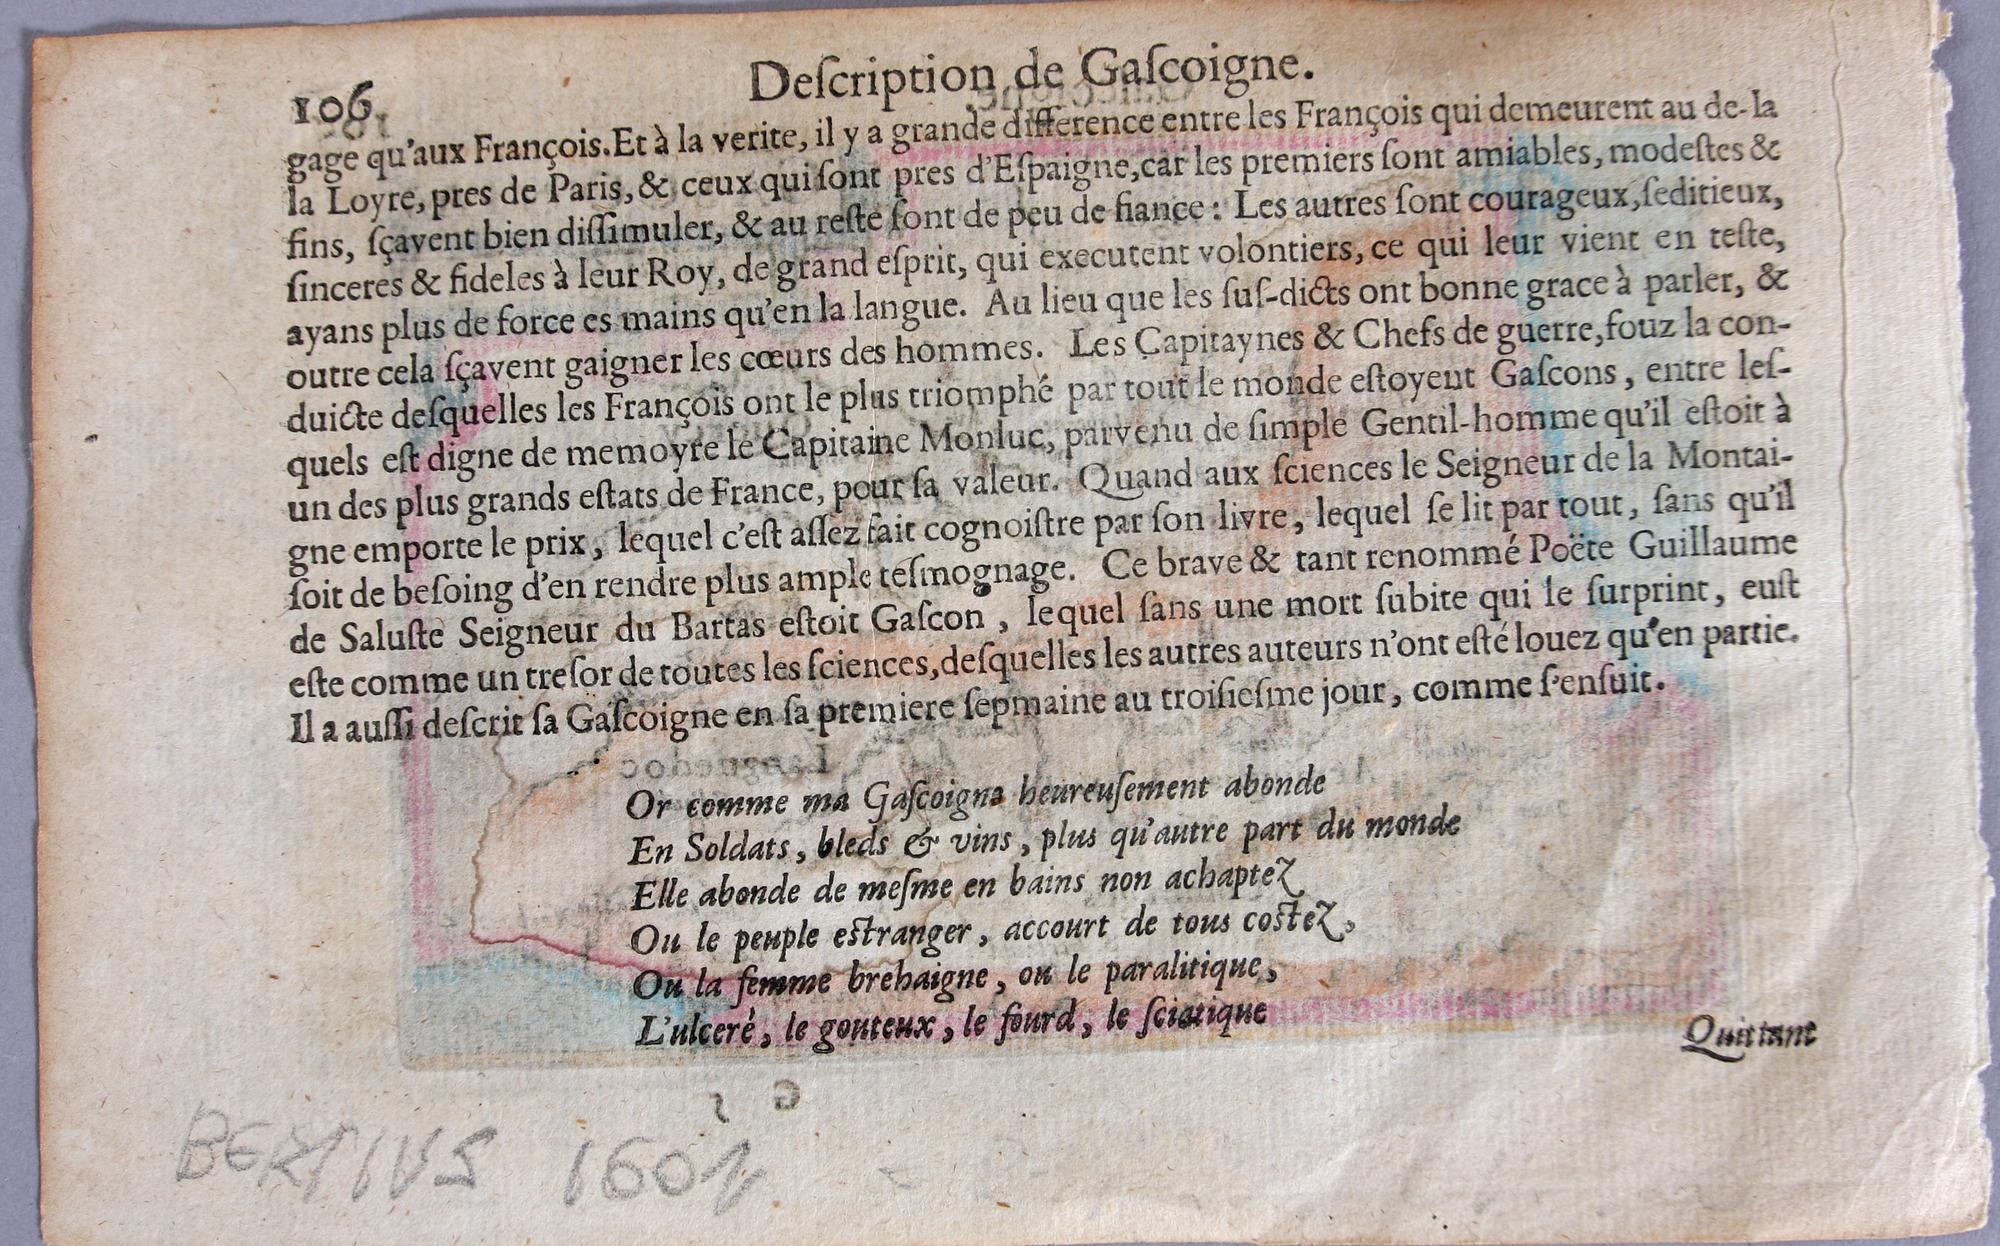 106
Deſcription de Gaſcoigne.
gage qu'aux François. Et à la verite, il y a grande difference entre les François qui demeurent au de-la
la Loyre, pres de Paris, & ceux qui ſont pres d'Eſpaigne, car les premiers ſont amiables, modeſtes &
fins, ſçavent bien diſſimuler, & au reſte ſont de peu de fiance : Les autres ſont courageux, ſeditieux,
ſinceres & fideles à leur Roy, de grand eſprit, qui executent volontiers, ce qui leur vient en teſte,
ayans plus de force es mains qu'en la langue. Au lieu que les ſuſ-dicts ont bonne grace à parler, &
outre cela ſçavent gaigner les cœurs des hommes. Les Capitaynes & Chefs de guerre, fouz la con-
duicte deſquelles les François ont le plus triomphé par tout le monde eſtoyent Gaſcons, entre leſ-
quels eſt digne de memoyre le Capitaine Monluc, parvenu de ſimple Gentil-homme qu'il eſtoit à
un des plus grands eſtats de France, pour ſa valeur. Quand aux ſciences le Seigneur de la Montai-
gne emporte le prix, lequel c'eſt aſſez fait cognoiſtre par ſon livre, lequel ſe lit par tout, ſans qu'il
ſoit de beſoing d'en rendre plus ample teſmognage. Ce brave & tant renommé Poëte Guillaume
de Saluſte Seigneur du Bartas eſtoit Gaſcon, lequel ſans une mort ſubite qui le ſurprint, euſt
eſte comme un treſor de toutes les ſciences, deſquelles les autres auteurs n'ont eſté louez qu'en partie.
Il a auſſi deſcrit ſa Gaſcoigne en ſa premiere ſepmaine au troiſieſme jour, comme ſ'enſuit.
Or comme ma Gaſcoigne heureuſement abonde
En Soldats, bleds & vins, plus qu'autre part du monde
Elle abonde de meſme en bains non achaptez
Ou le peuple eſtranger, accourt de tous coſtez,
Ou la femme brehaigne, ou le paralitique,
L'ulceré, le gouteux, le ſourd, le ſciatique
Quittant
BERTIUS 1601